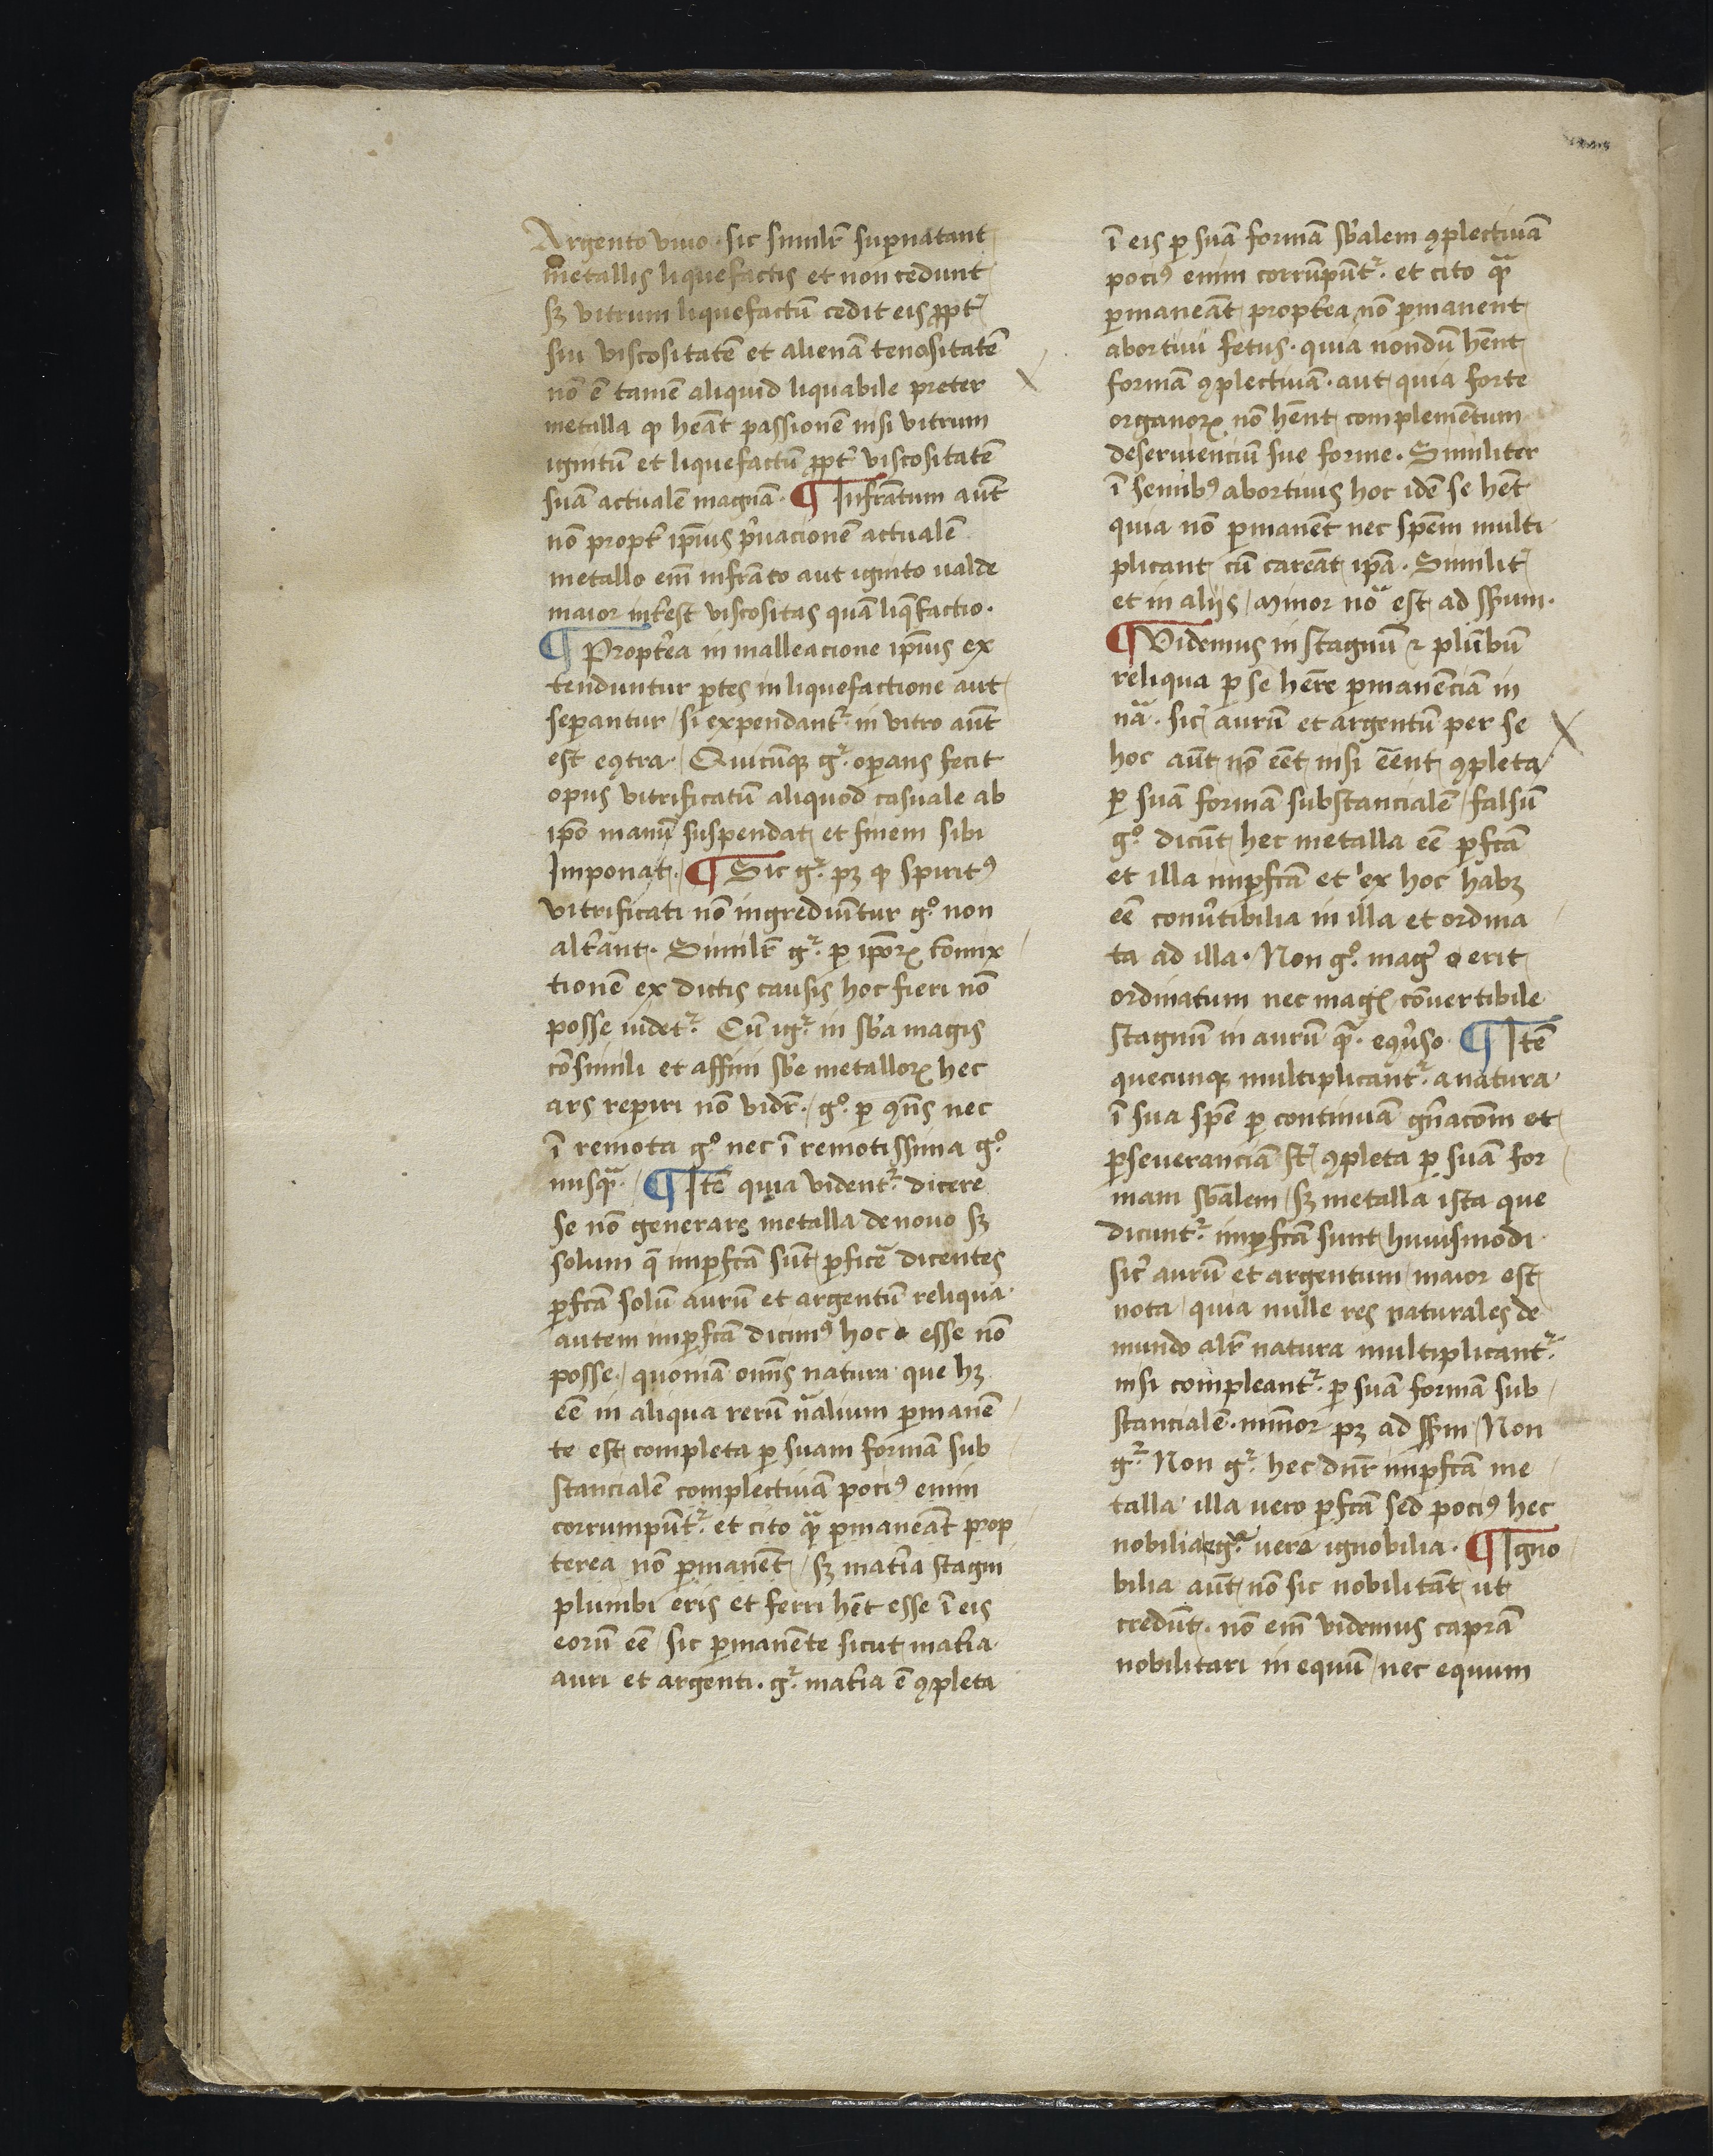 Argento viuo · sic similr̄ supernatant
metallis liquefactis et non cedunt
sꝫ vitrum liquefactū cedit eis ꝓpt̄
sui viscositatē et alienā tenasitatē
nō ē tamē aliquid liquabile preter
metalla ꝙ heāt passionē nisi vitrum
ignitū et liquefactū ꝓpt̄ viscositatē
suā actualē magnā · ¶ Infrāctum aūt
nō propt̄ ip̄ius p̄uacionē actualē
metallo em̄ infrācto aut ignito ualde
maior int̄est viscositas quā liq̄factio ·
¶ Propt̄ea in malleacione ip̄ius ex
tenduntur ꝑtes in liquefactione aut
seꝑantur / si expendant᷑ · in vitro aūt
est eꝯtra · Quicūqꝫ gͬ · oꝑans fecit
opus vitrificatū aliquod casuale ab
ip̄o manū suspendat et finem sibi
Imponat · ¶ Sic gͬ · pꝫ ꝙ spiritꝰ
vitrificati nō ingrediūtur gͦ non
alt̄ant · Similr̄ gͬ · ꝑ ip̄oꝝ cōmix
tionē ex dictis causis hoc fieri nō
posse uidet᷑ · Cū igͬ · in sb̄a magis
cōsimili et affini sb̄e metalloꝝ hec
ars reꝑiri nō vidr̄ · / gͦ · ꝑ ꝯn̄s nec
ī remota gͦ nec ī remotissima gͦ ·
nusqᷓ · / ¶ Itē quia vident᷑ · dicere
se nō generare metalla de nouo sꝫ
solum q̄ imꝑfcā sūt ꝑficē dicentes
ꝑfcā solū aurū et argentū reliqua
autem imꝑfcā dicimꝰ hoc esse nō
posse / quoniā omīs natura que hꝫ
eē in aliqua rerū nāalium ꝑmanē
te est completa ꝑ suam formā sub
stancialē complectiuā pociꝰ enim
corrumpūt᷑ · et cito qᷓ ꝑmaneāt prop
terea nō ꝑmanēt / sꝫ mat̄ia stagni
plumbi eris et ferri hēt esse ī eis
eorū eē / sic ꝑmanēte sicut mat̄ia
auri et argenti · gͬ · mat̄ia ē ꝯpleta
ī eis ꝑ suā formā sb̄alem ꝯplectiuā
pociꝰ enim corrūpūt᷑ · et cito qᷓ
ꝑmaneāt propt̄ea nō ꝑmanent
abortiui fetus · quia nondū hēnt
formā ꝯplectiuā · aut quia forte
organoꝝ nō hēnt complemētum
deseruienciū sue forme · Similiter
ī semibꝰ abortiuis hoc idē se hēt
quia nō ꝑmanēt nec spēm multi
plicant cū careāt ip̄a · Similit̄
et in aliis / minor nōa est ad ssum ·
¶ Videmus in stagnū ⁊ plūbū
reliqua ꝑ se hēre ꝑmanēciā in
nā · sic̄ aurū et argentū per se
hoc aūt nō eēt nisi eēent ꝯpleta
ꝑ suā formā substancialē / falsū
gͦ · dicūt hec metalla eē ꝑfcā
et illa imꝑfcā et ex hoc habꝫ
eē conūtibilia in illa et ordina
ta ad illa · Non gͦ · mag᷑ erit
ordinatum nec mag᷑ cōuertibile
stagnū in aurū qᷓ · eꝯūso · ¶ Itē
quecunqꝫ multiplicant᷑ · a natura
ī sua spē ꝑ continuā gn̄acōm et
ꝑseueranciā st̄ ꝯpleta ꝑ suā for
mam sb̄alem / sꝫ metalla ista que
dicunt᷑ · imꝑfcā sunt huiusmodi
sic̄ aurū et argentum / maior est
nota / quia nulle res naturales de
mundo alr̄ natura multiplicant᷑ ·
nisi compleant᷑ · ꝑ suā formā sub
stancialē · minor pꝫ ad ssm / Non
gͬ · Non gͬ · hec dn̄r imꝑfcā me
talla illa uero ꝑfcā sed pociꝰ hec
nobilia gͬ · uera ignobilia · ¶ Igno
bilia aūt nō sic nobilitāt ut
credūt · nō em̄ videmus caprā
nobilitari in equū / nec equum